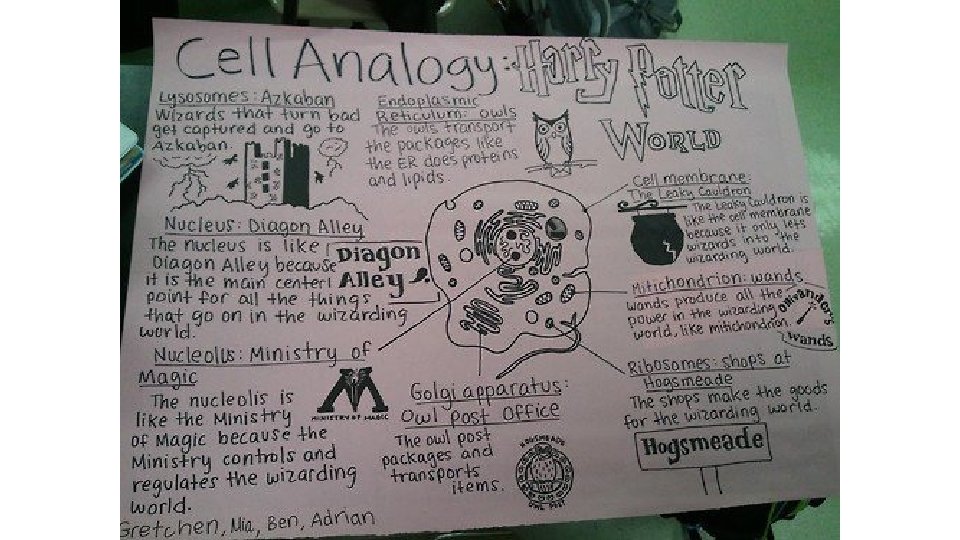 Cell Analogy: Harry Potter
World
Lysosomes: Azkaban
Wizards that turn bad
get captured and go to
Azkaban.
Endoplasmic
Reticulum: owls
The owls transport
the packages like
the ER does proteins
and lipids.
Cell membrane:
The Leaky Cauldron
The Leaky Cauldron is
like the cell membrane
because it only lets
wizards into the
wizarding world.
Nucleus: Diagon Alley
The nucleus is like
Diagon Alley because
it is the main center/
point for all the things
that go on in the wizarding
world.
Diagon
Alley
Mitichondrion: wands
wands produce all the
power in the wizarding
world, like mitichondrion.
Ollivander's
Wands
Nucleolis: Ministry of
Magic
The nucleolis is
like the Ministry
of Magic because the
Ministry controls and
regulates the wizarding
world.
MINISTRY OF MAGIC
Golgi apparatus:
Owl Post Office
The owl post
packages and
transports
items.
HOGSMEADE
OWL POST
Ribosomes: shops at
Hogsmeade
The shops make the goods
for the wizarding world.
Hogsmeade
Gretchen, Mia, Ben, Adrian